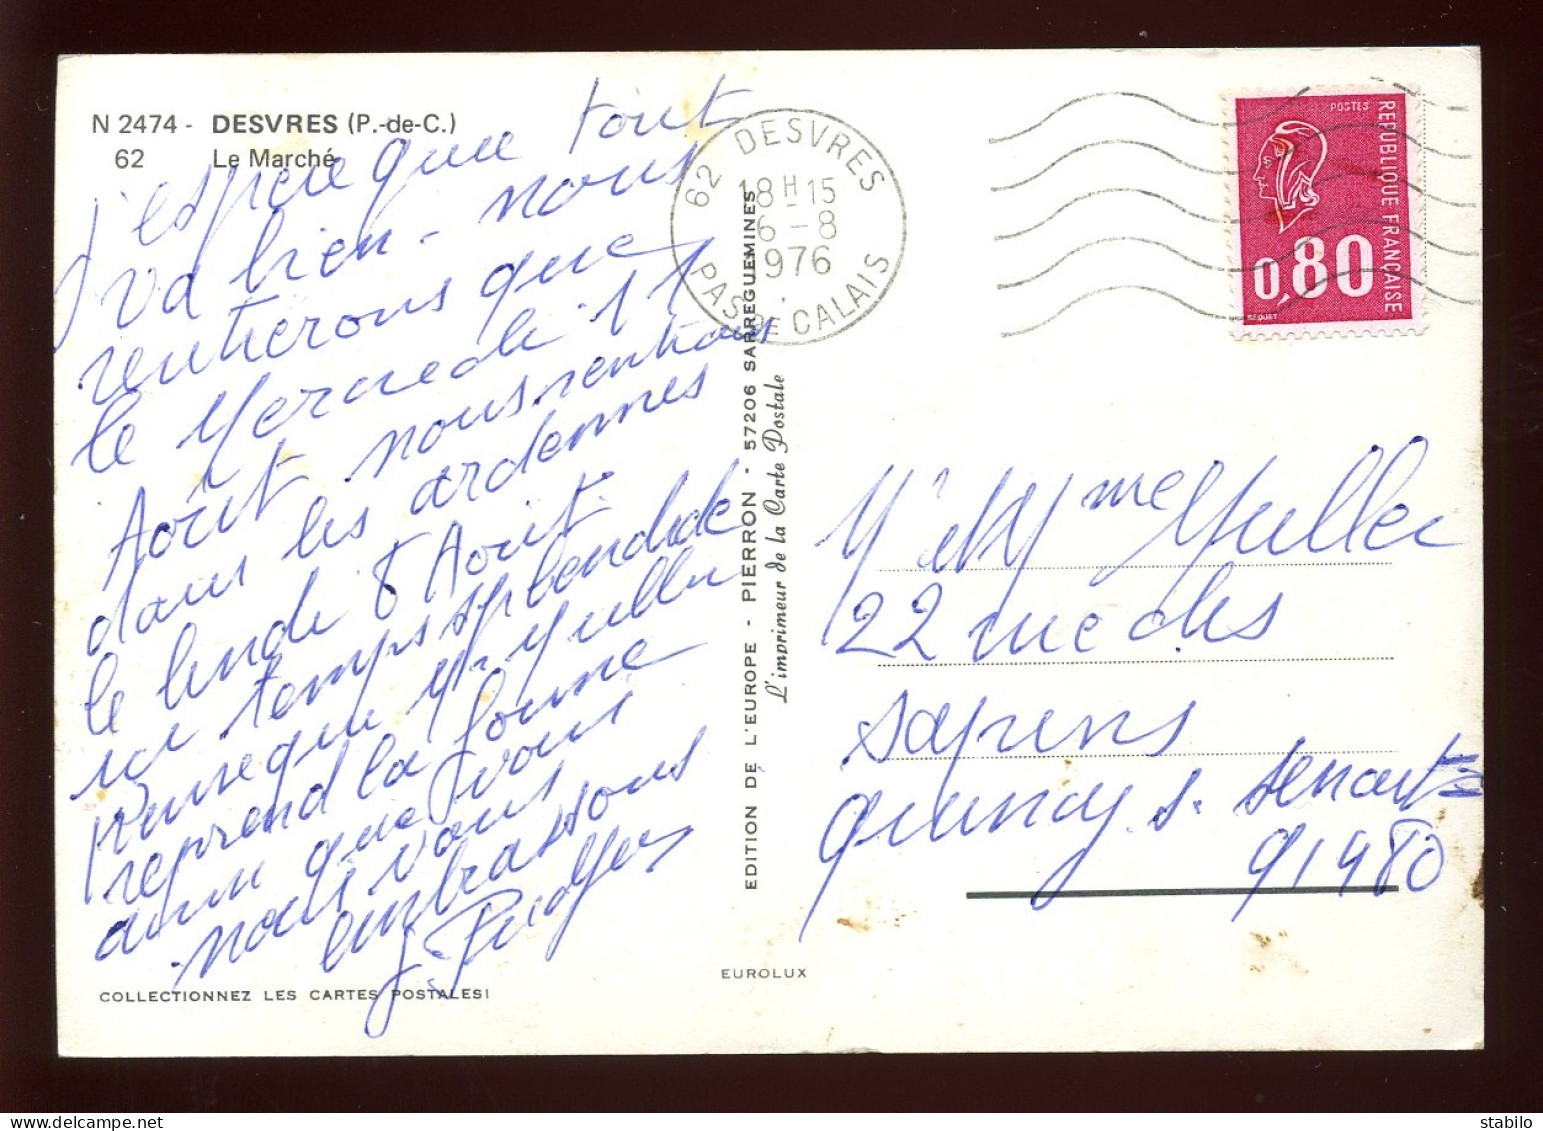 N 2474 - DESVRES (P.-de-C.)
62 Le Marché
j'espère que tout
va bien - nous
rentrerons que
le Mercredi 11
Aout nous rentrons
dans les ardennes
le lundi 8 Aout
ici temps splendide
que Mr Muller
reprend la forme
ainsi que vous
nous vous
embrassons
62 DESVRES
18H15
6-8
1976
PAS DE CALAIS
EDITION DE L'EUROPE - PIERRON - 57206 SARREGUEMINES
L'imprimeur de la Carte Postale
POSTES
REPUBLIQUE FRANÇAISE
0,80
BEQUET
Mr et Mme Muller
22 rue des
sapins
quincy s. senart
91480
EUROLUX
COLLECTIONNEZ LES CARTES POSTALES!
delcampe.net